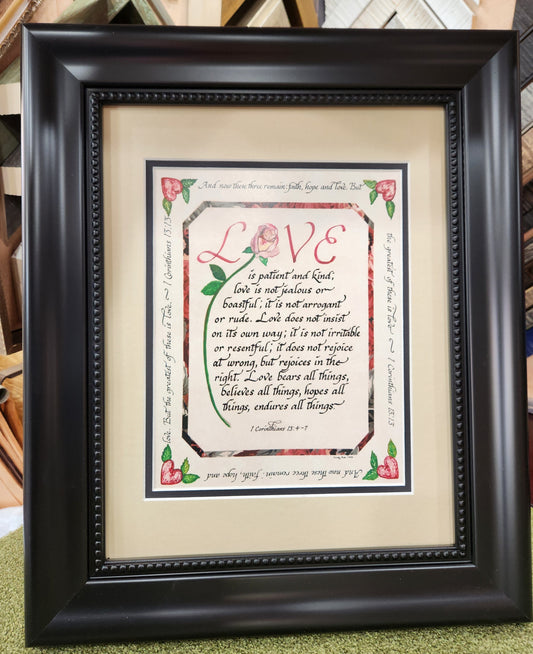 And now these three remain: faith, hope and love. But
the greatest of these is love ~ 1 Corinthians 13:13
LOVE
is patient and kind;
love is not jealous or
boastful; it is not arrogant
or rude. Love does not insist
on its own way; it is not irritable
or resentful; it does not rejoice
at wrong, but rejoices in the
right. Love bears all things,
believes all things, hopes all
things, endures all things.
1 Corinthians 13:4-7
And now these three remain: faith, hope and
love. But the greatest of these is love. ~ 1 Corinthians 13:13